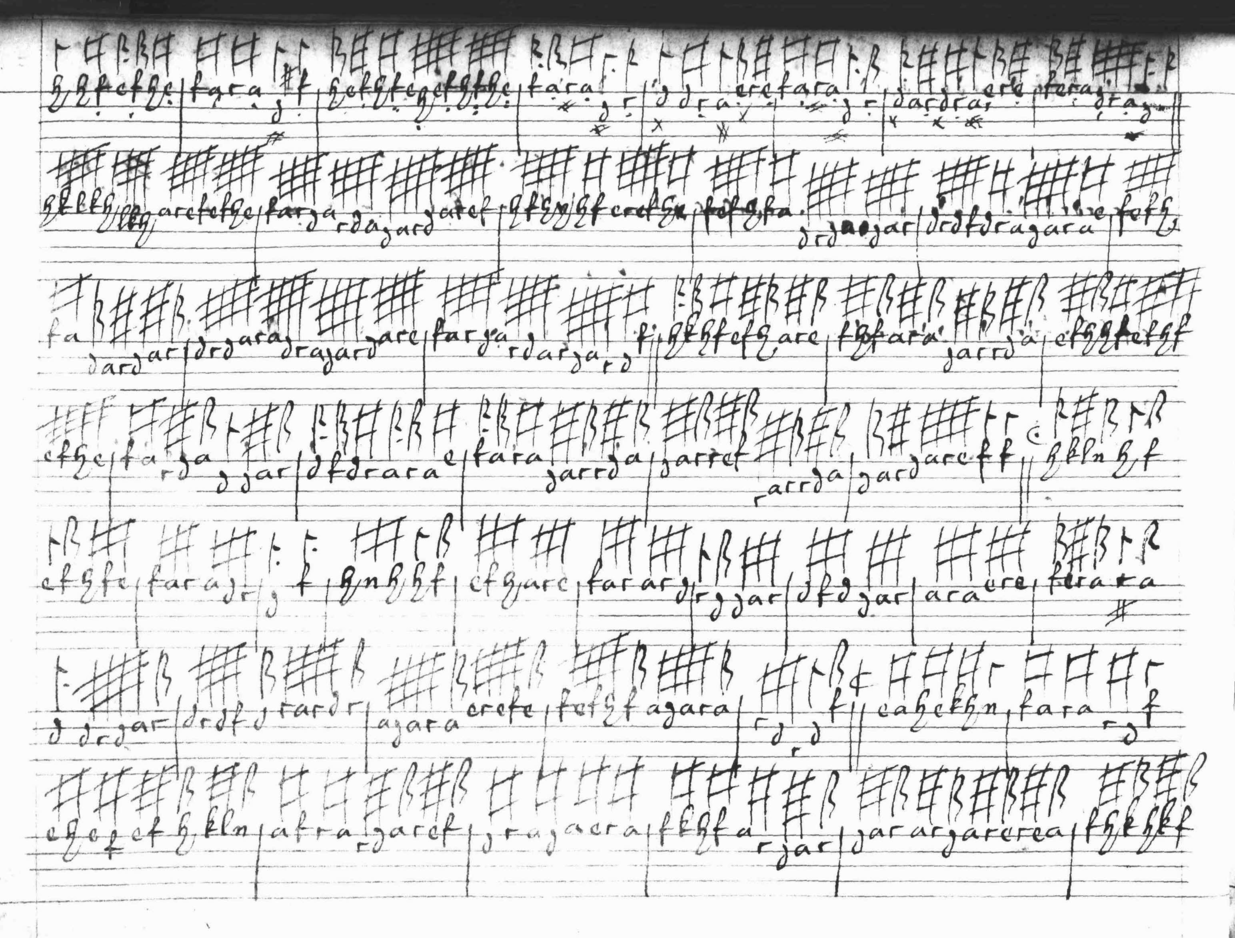 h h f e f h e | f a r a d f | h e f h f e h e f h f h e | f a r a d r | d d r a e r e f a r a d r | d a r d r a e r e | f e r a d d r a d
h k k k h l k h a r e f e f h e | f a r d a d r d a d a r d a r e f | h f h n h f e r e f h | f e f h f a d r d a d a r | d r d f d r a d a r a e | f e f h
f a d a r d a r | d r d a r a d r a d a r d a r e | f a r d a r d a r d a r d f || h k h f e f h a r e | f h f a r a d a r r d a | e f h h f e f h f
e f h e | f a r d a d d a r | d f d r a r a e | f a r a d a r r d a | d a r r e f r a r r d a | d a r d a r e f f || h k l n h f
e f h f e | f a r a d r | d f | h n h h f | e f h a r e | f a r a r d | r d d a r | d f d d a r | a r a e r e | f e r a r a
d d r d a r | d r d f d r a r d r | a d a r a e r e f e | f e f h f a d a r a | r d r d f || e a h e k h n | f a r a r d f
e h e f e f h k l n | a f r a r d a r e f | d r a d a e r a | f k h f a r d a r | d a r a r d a r e r e a | f h k h k f